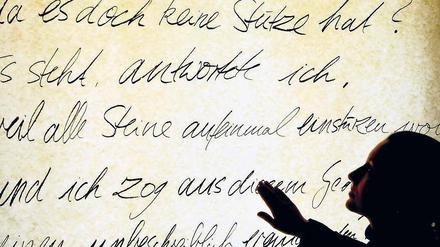 da es doch keine Stütze hat?
Es steht, antwortete ich,
weil alle Steine aufeinmal einstürzen wo
und ich zog aus diesem Ge
einen unbeschreiblich